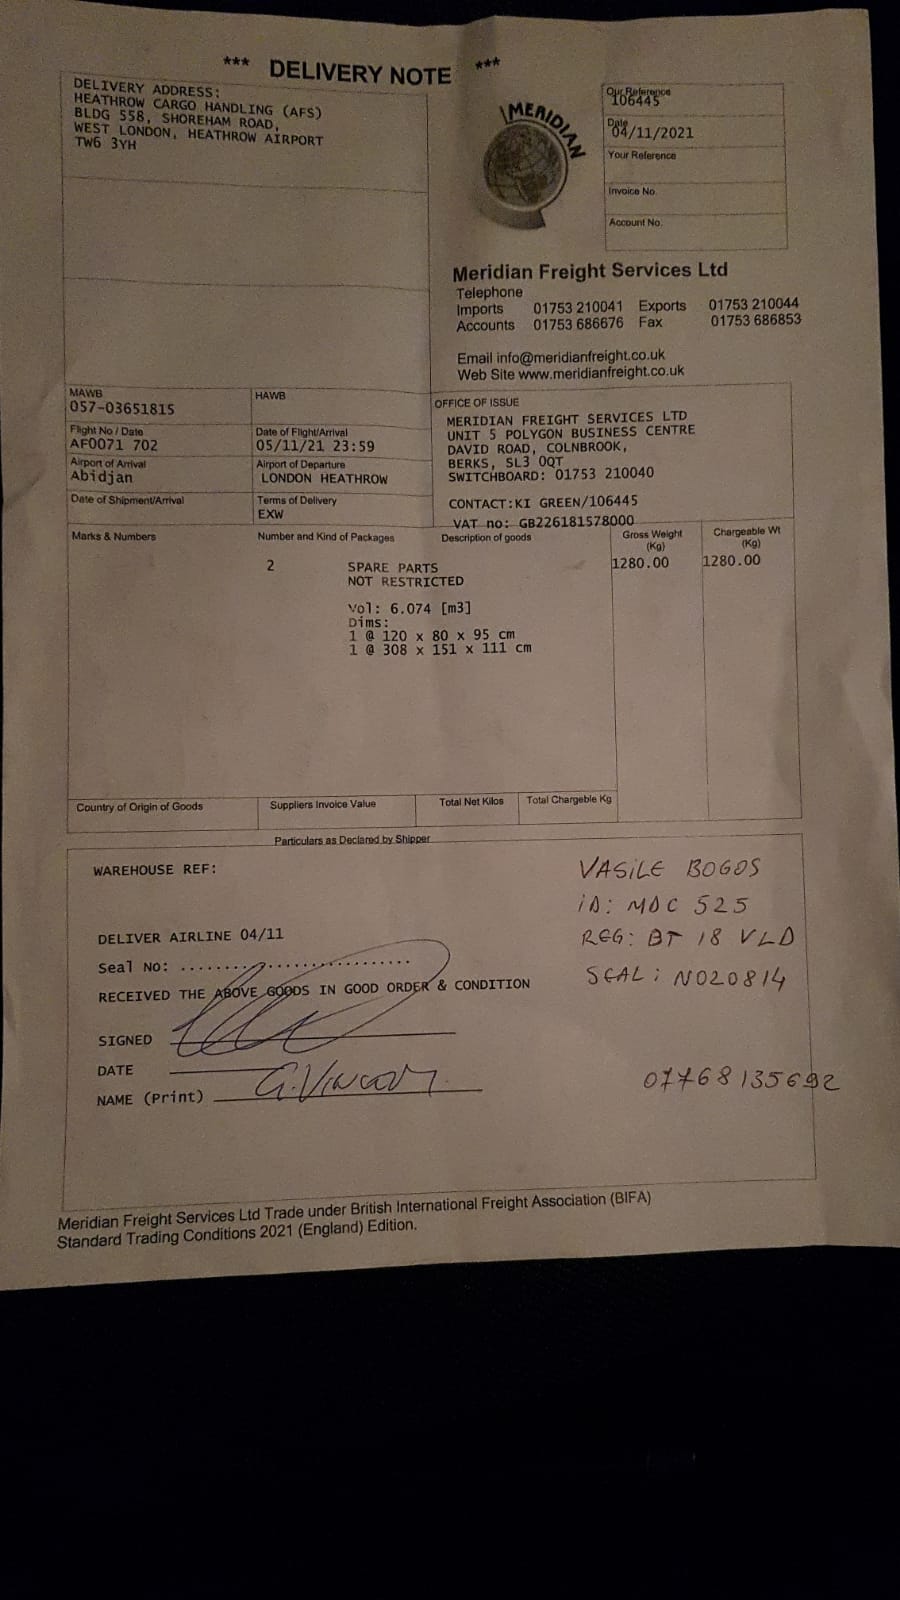 *** DELIVERY NOTE ***
DELIVERY ADDRESS:
HEATHROW CARGO HANDLING (AFS)
BLDG 558, SHOREHAM ROAD,
WEST LONDON, HEATHROW AIRPORT
TW6 3YH
MERIDIAN
Our Reference
106445
Date
04/11/2021
Your Reference
Invoice No.
Account No.
Meridian Freight Services Ltd
Telephone
Imports 01753 210041 Exports 01753 210044
Accounts 01753 686676 Fax 01753 686853
Email info@meridianfreight.co.uk
Web Site www.meridianfreight.co.uk
MAWB
057-03651815
HAWB
Flight No / Date
AF0071 702
Date of Flight/Arrival
05/11/21 23:59
Airport of Arrival
Abidjan
Airport of Departure
LONDON HEATHROW
Date of Shipment/Arrival
Terms of Delivery
EXW
OFFICE OF ISSUE
MERIDIAN FREIGHT SERVICES LTD
UNIT 5 POLYGON BUSINESS CENTRE
DAVID ROAD, COLNBROOK,
BERKS, SL3 0QT
SWITCHBOARD: 01753 210040
CONTACT:KI GREEN/106445
VAT no: GB226181578000
Marks & Numbers
Number and Kind of Packages
Description of goods
Gross Weight
(Kg)
Chargeable Wt
(Kg)
2 SPARE PARTS 1280.00 1280.00
NOT RESTRICTED
Vol: 6.074 [m3]
Dims:
1 @ 120 x 80 x 95 cm
1 @ 308 x 151 x 111 cm
Country of Origin of Goods
Suppliers Invoice Value
Total Net Kilos
Total Chargeble Kg
Particulars as Declared by Shipper
WAREHOUSE REF:
VASILE BOGOS
iD: MDC 525
REG: BT 18 VLD
SEAL: N020814
DELIVER AIRLINE 04/11
Seal No: ..............................
RECEIVED THE ABOVE GOODS IN GOOD ORDER & CONDITION
SIGNED
DATE
NAME (Print)
07768135692
Meridian Freight Services Ltd Trade under British International Freight Association (BIFA)
Standard Trading Conditions 2021 (England) Edition.